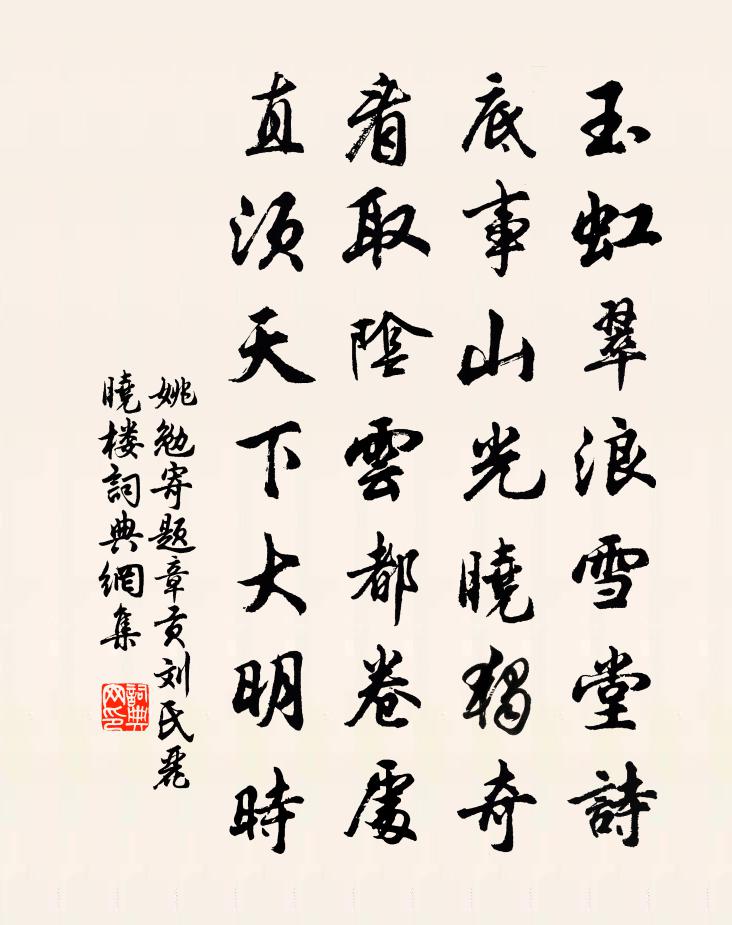 玉虹翠浪雪堂詩
底事山光曉獨奇
看取陰雲都卷處
直須天下大明時
姚勉寄題章貢刘氏麗
曉楼詞典網集
詞典
网印